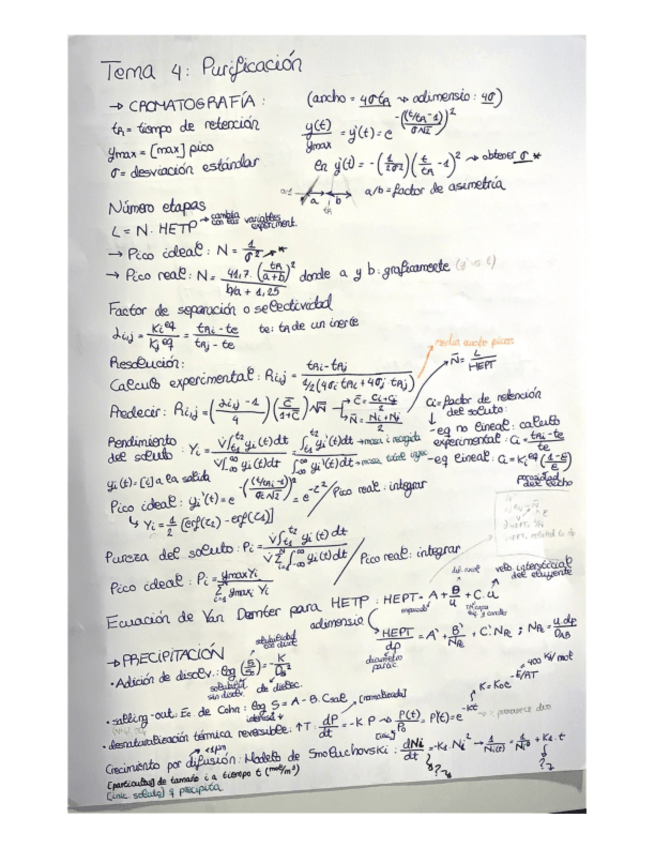 Tema 4: Purificación
→ CROMATOGRAFÍA: (ancho = 4σtR → adimensio: 4σ)
tR = tiempo de retención
ymax = [max] pico
σ = desviación estándar
y(t)/ymax = y'(t) = e^-((t/tR-1)/(σ√2))²
ln y'(t) = -(1/2σ²)(t/tR - 1)² → obtener σ *
a b tR a/b = factor de asimetría
Número etapas
L = N · HETP → cambia con las variables experiment.
→ Pico ideal: N = 1/σ² *
→ Pico real: N = 41,7 · (tR/(a+b))² / (b/a + 1,25) donde a y b: graficamente (y' vs t)
Factor de separación o selectividad
αi,j = Ki eq/Kj eq = (tRi - te)/(tRj - te) te: tR de un inerte
Resolución:
Calculo experimental: Ri,j = (tRi - tRj)/(1/2(4σi tRi + 4σj tRj)) media ancho picos
Predecir: Ri,j = ((αi,j - 1)/4)(C̄/(1+C̄))√N̄ → C̄ = (Ci+Cj)/2
→ N̄ = (Ni+Nj)/2
N̄ = L/HEPT
Ci = factor de retención del soluto:
- eq no lineal: calculo experimental: Ci = (tRi - te)/te
- eq lineal: Ci = Ki eq ((1-E)/E)
porosidad del lecho
Rendimiento del soluto: Yi = V̇∫t1 t2 yi(t)dt / V̇∫-∞ ∞ yi(t)dt = ∫t1 t2 yi'(t)dt / ∫-∞ ∞ yi'(t)dt → masa i recogida
→ masa total
yi(t) = [i] a la salida
Pico ideal: yi'(t) = e^-((t/tRi-1)/(σi√2))² = e^-τ² / Pico real: integrar
↳ Yi = 1/2 [erf(τ2) - erf(τ1)]
Pureza del soluto: Pi = V̇∫t1 t2 yi(t)dt / V̇ Σ ∫t1 t2 yi(t)dt / Pico real: integrar
Pico ideal: Pi = ymax Yi / Σ ymaxi Yi
Ecuación de Van Deemter para HETP: HEPT = A + B/u + C·u
velo intersticial del eluyente
adimensio
HEPT/dp = A' + B'/NRe + C'·NRe; NRe = u dp/DAB
diametro partic
→ PRECIPITACIÓN
· Adición de disolv.: log (S/S0) = -K/Ds²
solubilidad con disolv
solubilidad sin disolv de disolv.
· salting-out: Ec de Cohn: log S = A - B·Csal
· desnaturalización térmica reversible: ↑T: dP/dt = -K P → P(t)/P0 = P'(t) = e^-Kt
[normalizada]
K = K0 e^-E/RT
400 KJ/mol
Crecimiento por difusión: Modelo de Smoluchovski: dNi/dt = -K1·Ni² → 1/Ni(t) = 1/Ni0 + K1·t
<1μm
[particulas] de tamaño i a tiempo t (mol/m³)
[inic. soluto] q precipita